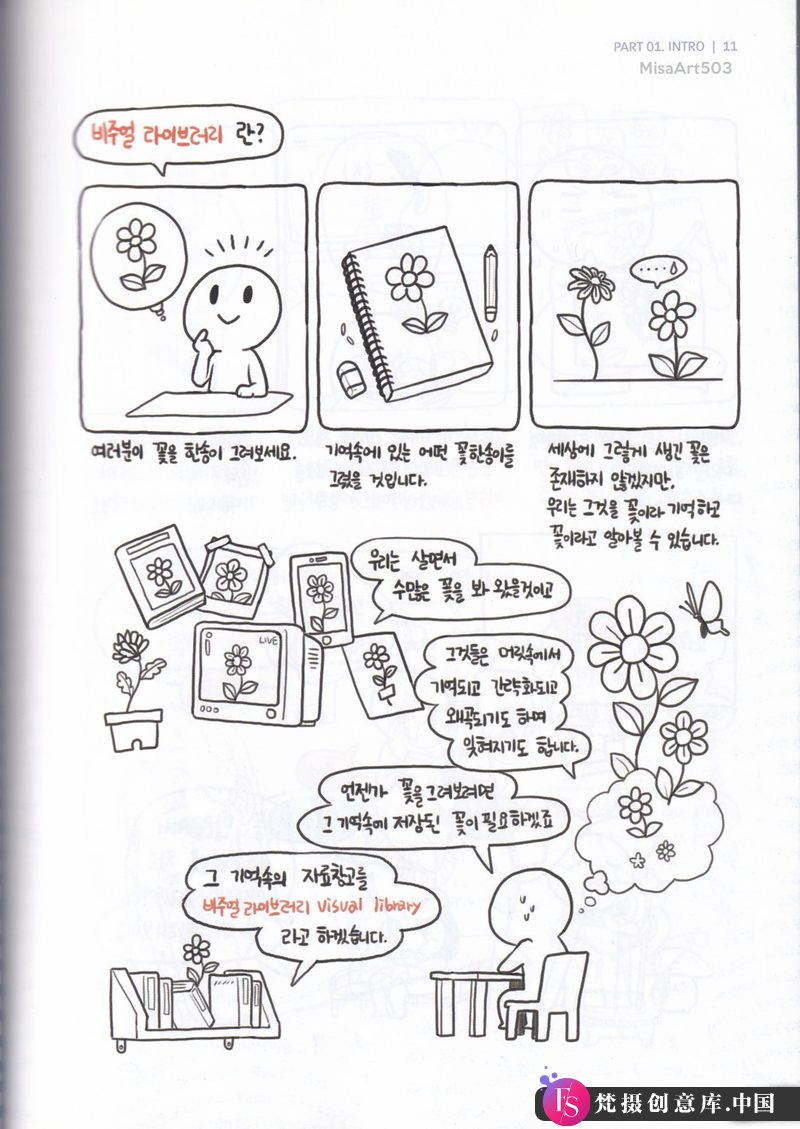 PART 01. INTRO | 11
MisaArt503
비주얼 라이브러리 란?
여러분이 꽃을 한송이 그려보세요.
기억속에 있는 어떤 꽃한송이를
그렸을 것입니다.
세상에 그렇게 생긴 꽃은
존재하지 않겠지만,
우리는 그것을 꽃이라 기억하고
꽃이라고 알아볼 수 있습니다.
우리는 살면서
수많은 꽃을 봐 왔을것이고
LIVE
그것들은 머릿속에서
기억되고 간략화되고
왜곡되기도 하며
잊혀지기도 합니다.
언젠가 꽃을그려보려면
그 기억속에 저장된 꽃이 필요하겠죠
그 기억속의 자료창고를
비주얼 라이브러리 visual library
라고 하겠습니다.
FS 梵摄创意库.中国